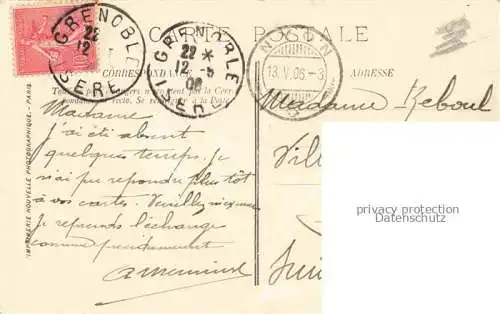 CARTE POSTALE
GRENOBLE
22
12
ISERE
GRENOBLE
22 *
12 -5
06
ISERE
NYON
13.V.06.-3
CORRESPONDANCE
ADRESSE
Tous les pays étrangers n'acceptent pas la Corres-
pondance au recto. Se renseigner à la Poste
IMPRIMERIE NOUVELLE PHOTOGRAPHIQUE. - PARIS.
Madame
j'ai été absent
quelques temps. Je
n'ai pu répondre plus tôt
à vos cartes. Veuillez m'excuser
Je reprends l'échange
comme précédemment
Madame Reboul
Vill
Sui
privacy protection
Datenschutz